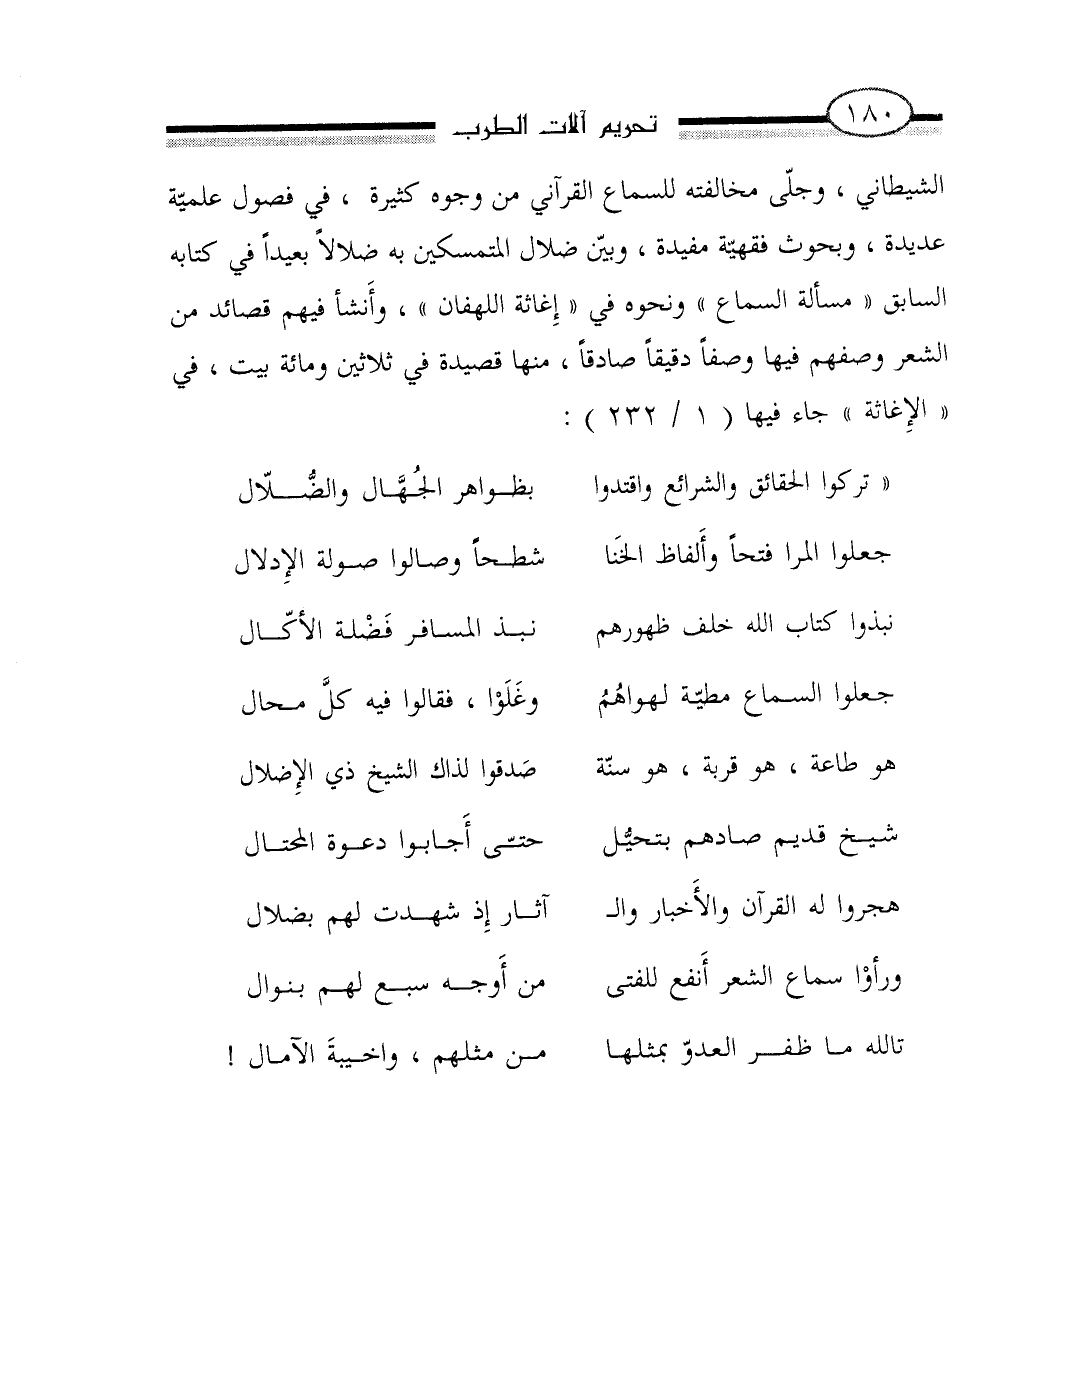 ١٨٠ تحريم آلات الطرب
الشيطاني ، وجلّى مخالفته للسماع القرآني من وجوه كثيرة ، في فصول علميّة
عديدة ، وبحوث فقهيّة مفيدة ، وبيّن ضلال المتمسكين به ضلالاً بعيداً في كتابه
السابق « مسألة السماع » ونحوه في « إِغاثة اللهفان » ، وأَنشأ فيهم قصائد من
الشعر وصفهم فيها وصفاً دقيقاً صادقاً ، منها قصيدة في ثلاثين ومائة بيت ، في
« الإِغاثة » جاء فيها ( ١ / ٢٣٢ ) :
« تركوا الحقائق والشرائع واقتدوا بظـواهر الجُهَّـال والضُّـــلّال
جعلوا المرا فتحاً وأَلفاظ الخَنا شطـحاً وصـالوا صـولة الإِدلال
نبذوا كتاب الله خلف ظهورهم نبـذ المسـافر فَضْلـة الأكّـال
جعلوا السـماع مطيّـة لـهواهُمُ وغَلَوْا ، فقالوا فيه كلَّ محـال
هو طاعة ، هو قربة ، هو سنّة صَدقوا لذاك الشيخ ذي الإِضلال
شيـخ قديـم صـادهـم بتحيُّـل حتـّـى أَجـابـوا دعـوة المحتـال
هجروا له القرآن والأَخبار والـ آثـار إِذ شهـدت لهم بضلال
ورأوْا سماع الشعر أَنفع للفتى من أَوجـه سبـع لهـم بنـوال
تالله مـا ظفـر العدوّ بمثلهـا مـن مثلهم ، واخـيبةَ الآمـال !